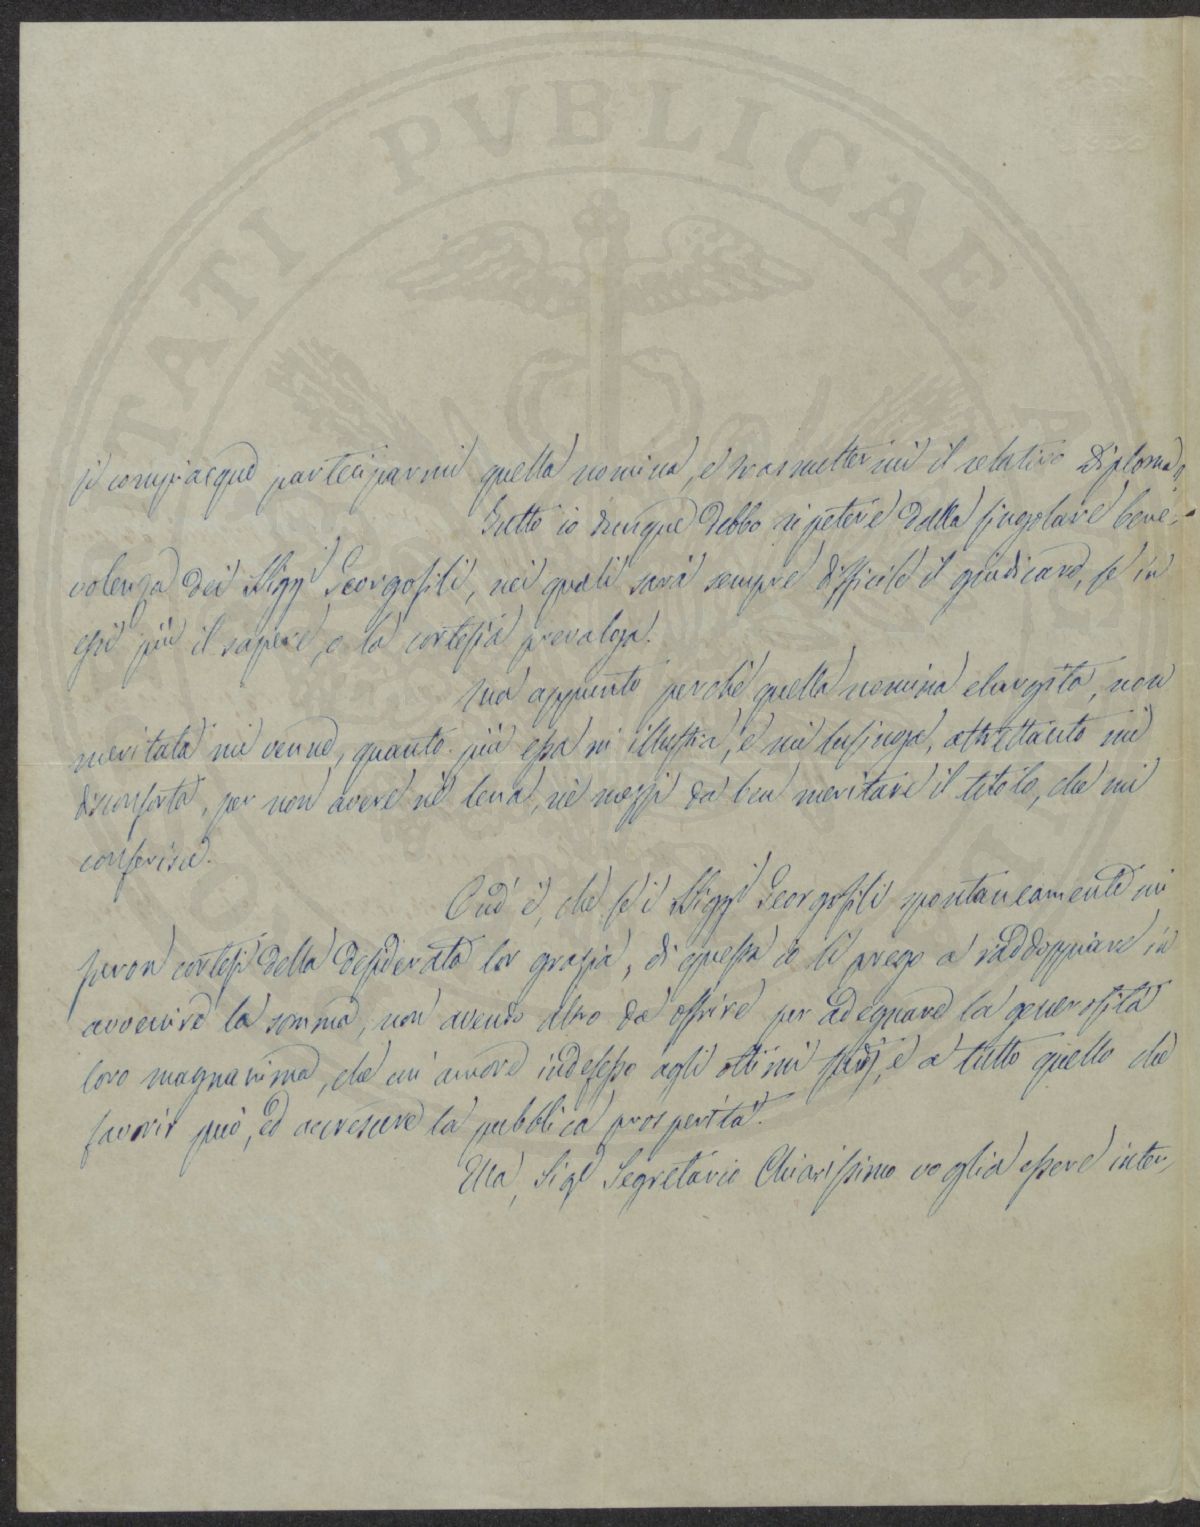 TATI PVBLICAE A
si compiacque parteciparmi quella nomina, e trasmettermi il relativo diploma.
Tutto io dunque debbo ripetere dalla singolare bene-
volenza dei Sigg.i Georgofili, nei quali sarà sempre difficile il giudicare, se in
essi più il sapere, o la cortesia prevalga.
Ma appunto perché quella nomina elargita, non
meritata mi venne, quanto più essa m'illustra, e mi lusinga, altrettanto mi
disconforta, per non avere nè lena, nè mezzi da ben meritare il titolo, che mi
conferisce.
Ond'è, che se i Sigg.i Georgofili spontaneamente mi
furon cortesi della desiderata lor grazia, di questa io li prego a raddoppiare in
avvenire la somma, non avendo altro da offrire per adeguare la generosità
loro magnanima, che un amore indefesso agli ottimi studj, e a tutto quello che
favorir può, ed accrescere la pubblica prosperità.
Ella, Sig.r Segretario Chiarissimo voglia essere inter-